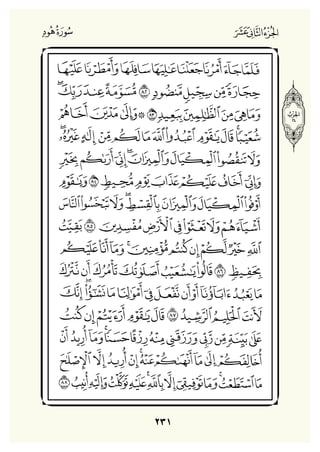 الجُزْءُ الثَّانِي عَشَرَ
سُورَةُ هُودٍ
فَلَمَّا جَآءَ أَمْرُنَا جَعَلْنَا عَٰلِيَهَا سَافِلَهَا وَأَمْطَرْنَا عَلَيْهَا
حِجَارَةً مِّن سِجِّيلٍ مَّنضُودٍ ٨٢ مُّسَوَّمَةً عِندَ رَبِّكَۖ
وَمَا هِيَ مِنَ ٱلظَّٰلِمِينَ بِبَعِيدٍ ٨٣ ۞ وَإِلَىٰ مَدْيَنَ أَخَاهُمْ
شُعَيْبًاۚ قَالَ يَٰقَوْمِ ٱعْبُدُواْ ٱللَّهَ مَا لَكُم مِّنْ إِلَٰهٍ غَيْرُهُۥۖ
وَلَا تَنقُصُواْ ٱلْمِكْيَالَ وَٱلْمِيزَانَۖ إِنِّيٓ أَرَىٰكُم بِخَيْرٍ
وَإِنِّيٓ أَخَافُ عَلَيْكُمْ عَذَابَ يَوْمٍ مُّحِيطٍ ٨٤ وَيَٰقَوْمِ
أَوْفُواْ ٱلْمِكْيَالَ وَٱلْمِيزَانَ بِٱلْقِسْطِۖ وَلَا تَبْخَسُواْ ٱلنَّاسَ
أَشْيَآءَهُمْ وَلَا تَعْثَوْاْ فِي ٱلْأَرْضِ مُفْسِدِينَ ٨٥ بَقِيَّتُ
ٱللَّهِ خَيْرٌ لَّكُمْ إِن كُنتُم مُّؤْمِنِينَۚ وَمَآ أَنَا۠ عَلَيْكُم
بِحَفِيظٍ ٨٦ قَالُواْ يَٰشُعَيْبُ أَصَلَوٰتُكَ تَأْمُرُكَ أَن نَّتْرُكَ
مَا يَعْبُدُ ءَابَآؤُنَآ أَوْ أَن نَّفْعَلَ فِيٓ أَمْوَٰلِنَا مَا نَشَٰٓؤُاْۖ إِنَّكَ
لَأَنتَ ٱلْحَلِيمُ ٱلرَّشِيدُ ٨٧ قَالَ يَٰقَوْمِ أَرَءَيْتُمْ إِن كُنتُ
عَلَىٰ بَيِّنَةٍ مِّن رَّبِّي وَرَزَقَنِي مِنْهُ رِزْقًا حَسَنًاۚ وَمَآ أُرِيدُ أَنْ
أُخَالِفَكُمْ إِلَىٰ مَآ أَنْهَىٰكُمْ عَنْهُۚ إِنْ أُرِيدُ إِلَّا ٱلْإِصْلَٰحَ
مَا ٱسْتَطَعْتُۚ وَمَا تَوْفِيقِيٓ إِلَّا بِٱللَّهِۚ عَلَيْهِ تَوَكَّلْتُ وَإِلَيْهِ أُنِيبُ ٨٨
٢٣١